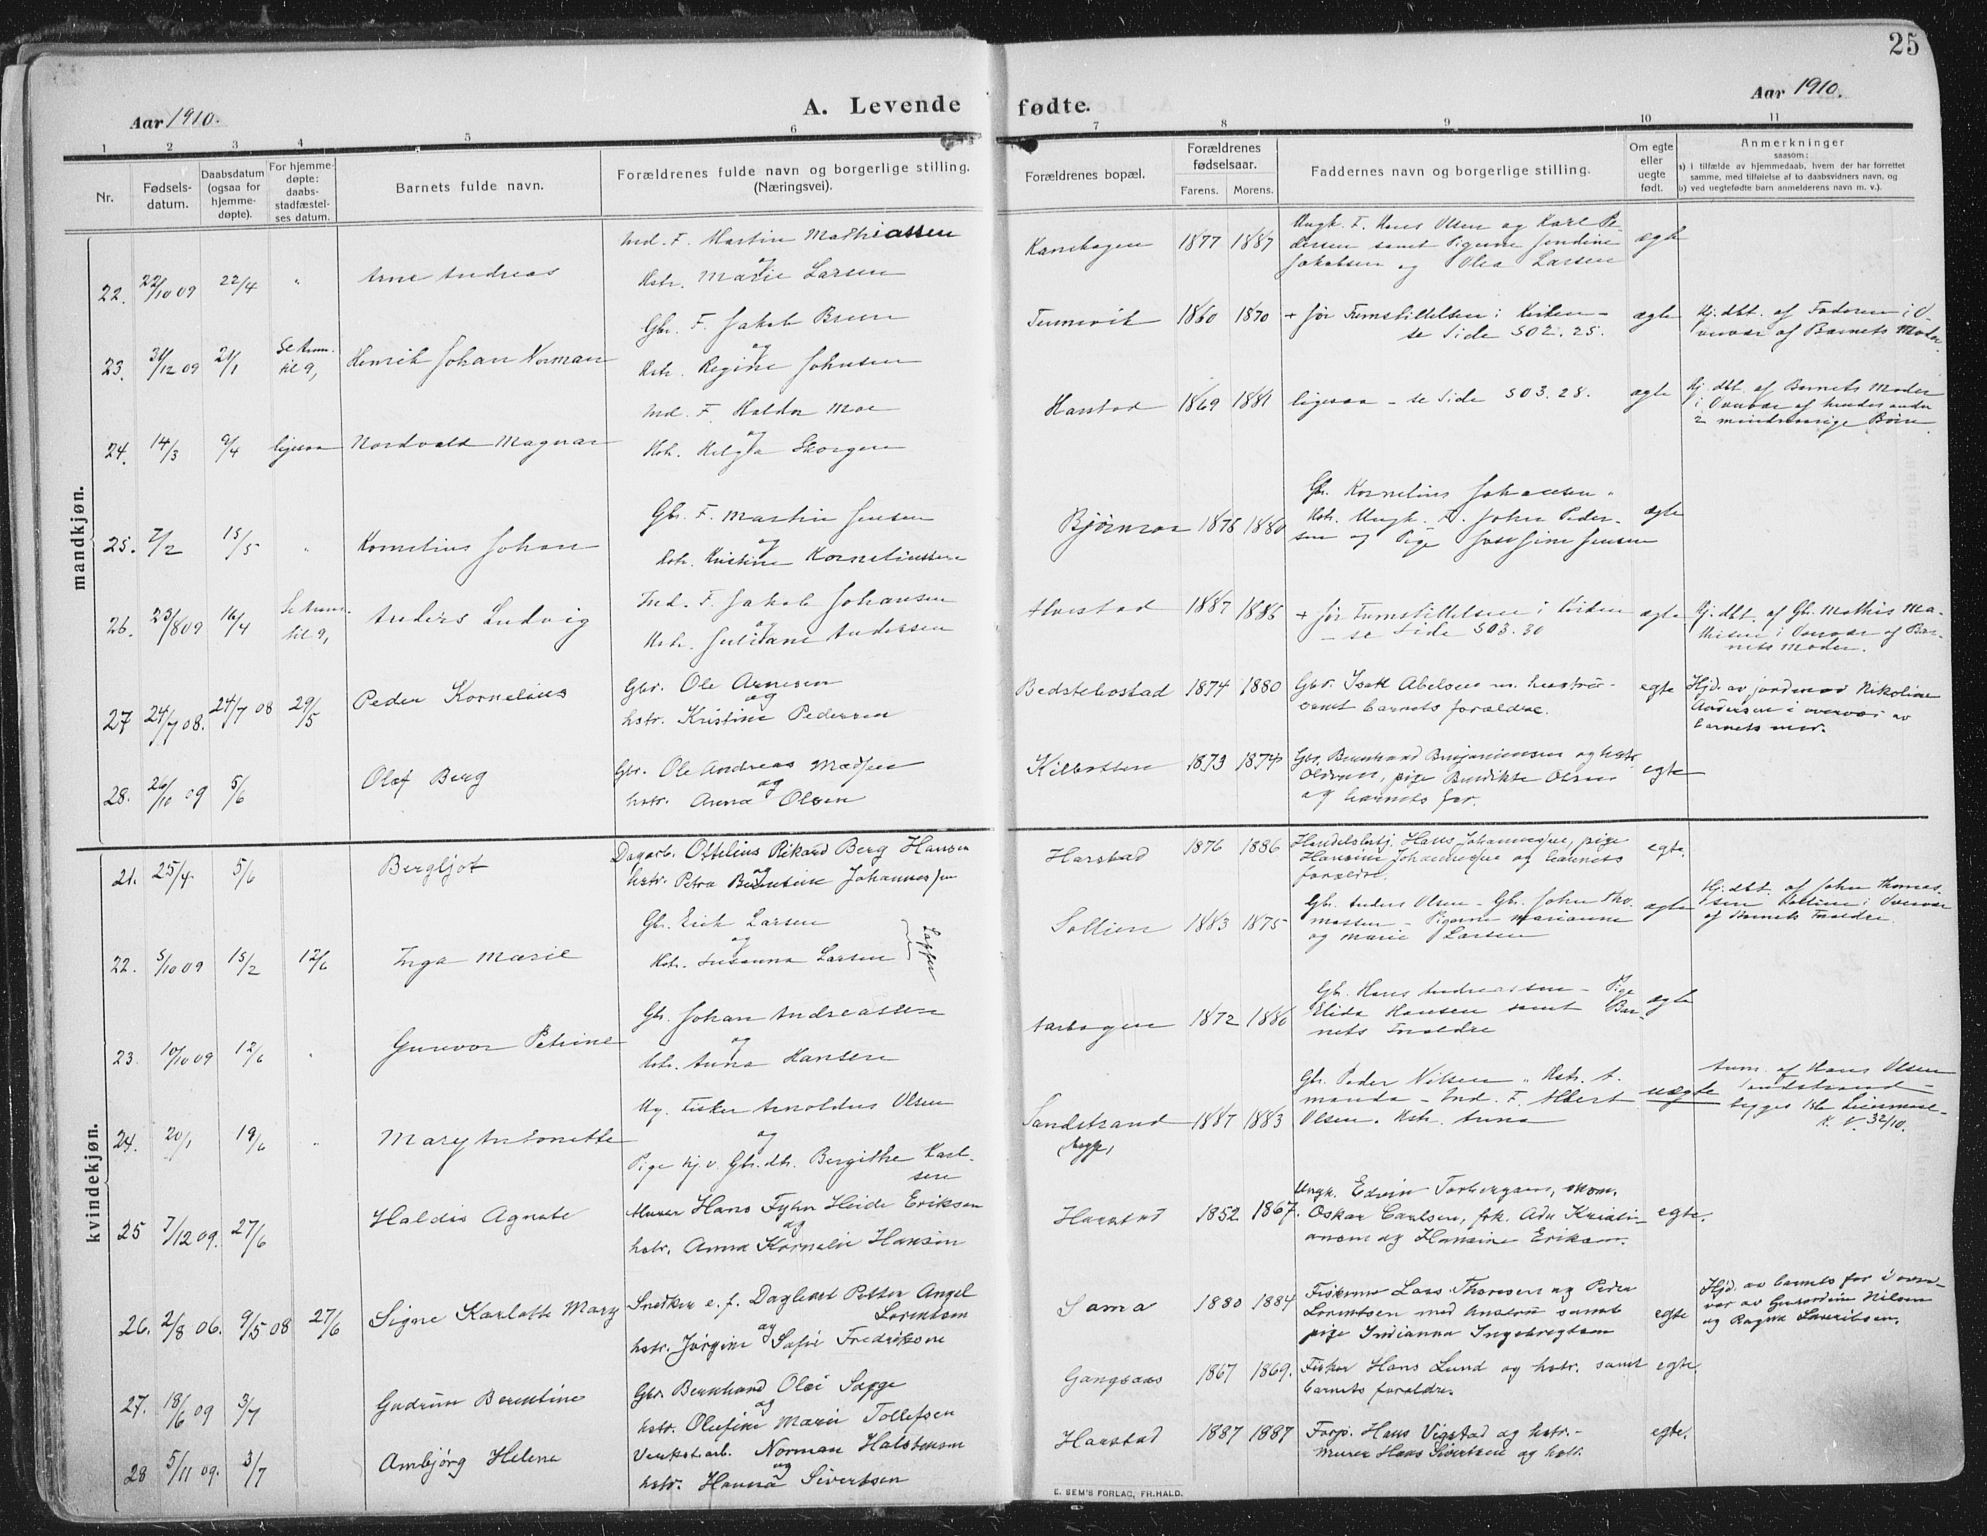 25
Aar 1910.
A. Levende fødte.
Aar 1910.
1 2 3 4 5 6 7 8 9 10 11
Nr.
Fødsels-
datum.
Daabsdatum
(ogsaa for
hjemme-
døpte).
For hjemme-
døpte:
daabs-
stadfæstel-
ses datum.
Barnets fulde navn.
Forældrenes fulde navn og borgerlige stilling.
(Næringsvei).
Forældrenes bopæl.
Forældrenes
fødselsaar.
Farens. Morens.
Faddernes navn og borgerlige stilling.
Om egte
eller
uegte
født.
Anmerkninger
saasom:
a) i tilfælde av hjemmedaab, hvem der har forrettet
samme, med tilføielse af to daabsvidners navn, og
b) ved uegtefødte barn anmelderens navn m. v.).
mandkjøn.
22. 22/10 09 22/4 " Arne Andreas
Ind. F. Martin Mathiassen
og
Hstr. Marie Larsen
Kanebogen 1877 1887
Ungk. F. Hans Olsen og Karl Pe-
dersen samt Pigerne Jendine
Jakobsen og Olea Larsen
ægte
23. 31/12 09 21/1 Se Anm. til 9, Henrik Johan Norman
Gbr. F. Jakob Bruun
og
Hstr. Regine Johnsen
Tennevik 1860 1870
+ før Fremstillelsen i Kirken -
se Side 502. 25.
ægte
Hj. dbt. af Faderen i O-
vervær af Barnets Moder.
24. 14/3 9/4 ligesaa Nordvald Magnar
Ind. F. Haldor Moe
og
Hstr. Helga Skogen
Harstad 1869 1881
ligesaa - se Side 503. 28.
ægte
Hj. dbt. af Barnets Moder
i Overvær af hendes andre
2 mindreaarige Børn
25. 7/2 15/5 " Kornelius Johan
Gbr. F. Martin Jensen
og
Hstr. Kristine Korneliussen
Bjørnraa 1878 1880
Gbr. Kornelius Johansen "
Hstr. Ungk. F. John Peder-
sen og Pige Josefine Jensen
ægte
26. 23/8 09 16/4 Se Anm. til 9, Anders Ludvig
Ind. F. Jakob Johansen
og
Hstr. Juliane Andersen
Alvestad 1887 1885
+ før Fremstillelsen i Kirken
- se Side 503. 30
ægte
Hj. dbt. af Gbr. Mathis Ma-
thisen i Overvær af Bar-
nets Moder.
27 24/7 08. 24/7 08 29/5 Peder Kornelius
Gbr. Ole Arnesen
og
hstr. Kristine Pedersen
Bedstebostad 1874 1880
Gbr. Isak Abelsen m. hustru -
samt barnets forældre.
egte
Hjd. av jordmor Nikoline
Andersen i overvær av
barnets mor.
28. 26/10 09 5/6 Olaf Berg
Gbr. Ole Andreas Madsen
og
hstr. Anna Olsen
Kilbotten 1873 1874
Gbr. Bernhard Benjaminsen og hstr.
Oldine, pige Bendikte Olsen
og barnets far.
egte
kvindekjøn.
21. 25/4 5/6 Bergljot
Dagarb. Ottelius Rikard Berg Hansen
og
hstr. Petra Berntine Johannessen
Harstad 1876 1886
Handelsbetj. Hans Johannessen, pige
Hansine Johannessen og barnets
forældre.
egte.
22. 5/10 09 15/2 12/6 Inga Marie
Gbr. Erik Larsen
og
Hstr. Susanna Larsen
Lapper
Sollien 1883 1875
Gbr. Anders Olsen - Gbr. John Tho-
massen - Pigerne Marianne
og Marie Larsen
ægte
Hj. dbt. af John Thomas-
sen Sollien i Overvær
af Barnets Forældre.
23. 10/10 09 12/6 " Gunvor Petrine
Gbr. Johan Andreassen
og
Hstr. Anna Hansen
Aarbogen 1872 1886
Gbr. Hans Andreassen - Pige
Elida Hansen samt Bar-
nets Forældre
ægte
24. 20/1 19/6 " Mary Antonette
Ug. Fisker Arnoldus Olsen
og
Pige hj. v. Gbr. dtr. Bergithe Karl-
sen
Sandstrand
begge,
1887 1883
Gbr. Peder Nilsen " Hstr. A-
manda - Ind. F. Albert
Olsen. Hstr. Anna
uægte
Anm. af Hans Olsen
Sandstrand -
begges 1ste Leiermaal -
K. V. 32/10.
25 7/12 09. 27/6 Haldis Agnete
Murer Hans Fyhn Heide Eriksen
og
hstr. Anna Kornelie Hansen
Harstad 1852 1867.
Ungk. Edvin Torbergsen, skom.
Oskar Carlsen, frk. Ada Kristi-
ansen og Hansine Eriksen.
egte.
26. 2/8 06. 9/5 08 27/6 Signe Karlotte Mary
Snedker e. f. Dagbert Petter Angel
Lorentsen
og
hstr. Jørgine Sofie Fredriksen
Sama 1880 1884
Fiskerne Lars Thoresen og Peder
Lorentsen med hustru samt
pige Indianna Ingebregtsen
egte
Hjd. av barnets far i over-
vær av Gunerdine Nilsen
og Ragna Lauritsen.
27. 18/6 09 3/7 Gudrun Berntine
Gbr Bernhard Olai Sagge
og
hstr. Olufine Marie Tollefsen
Gangsaas 1867 1869.
Fisker Hans Lund og hstr. samt
barnets forældre.
egte.
28 5/11 09. 3/7 Ambjørg Helene
Verkst.arb. Norman Halstensen
og
hstr. Hanna Sivertsen
Harstad 1887 1887
Forp. Hans Vigstad og hstr. -
murer Hans Sivertsen og hstr.
egte.
E. SEM'S FORLAG, FR.HALD.